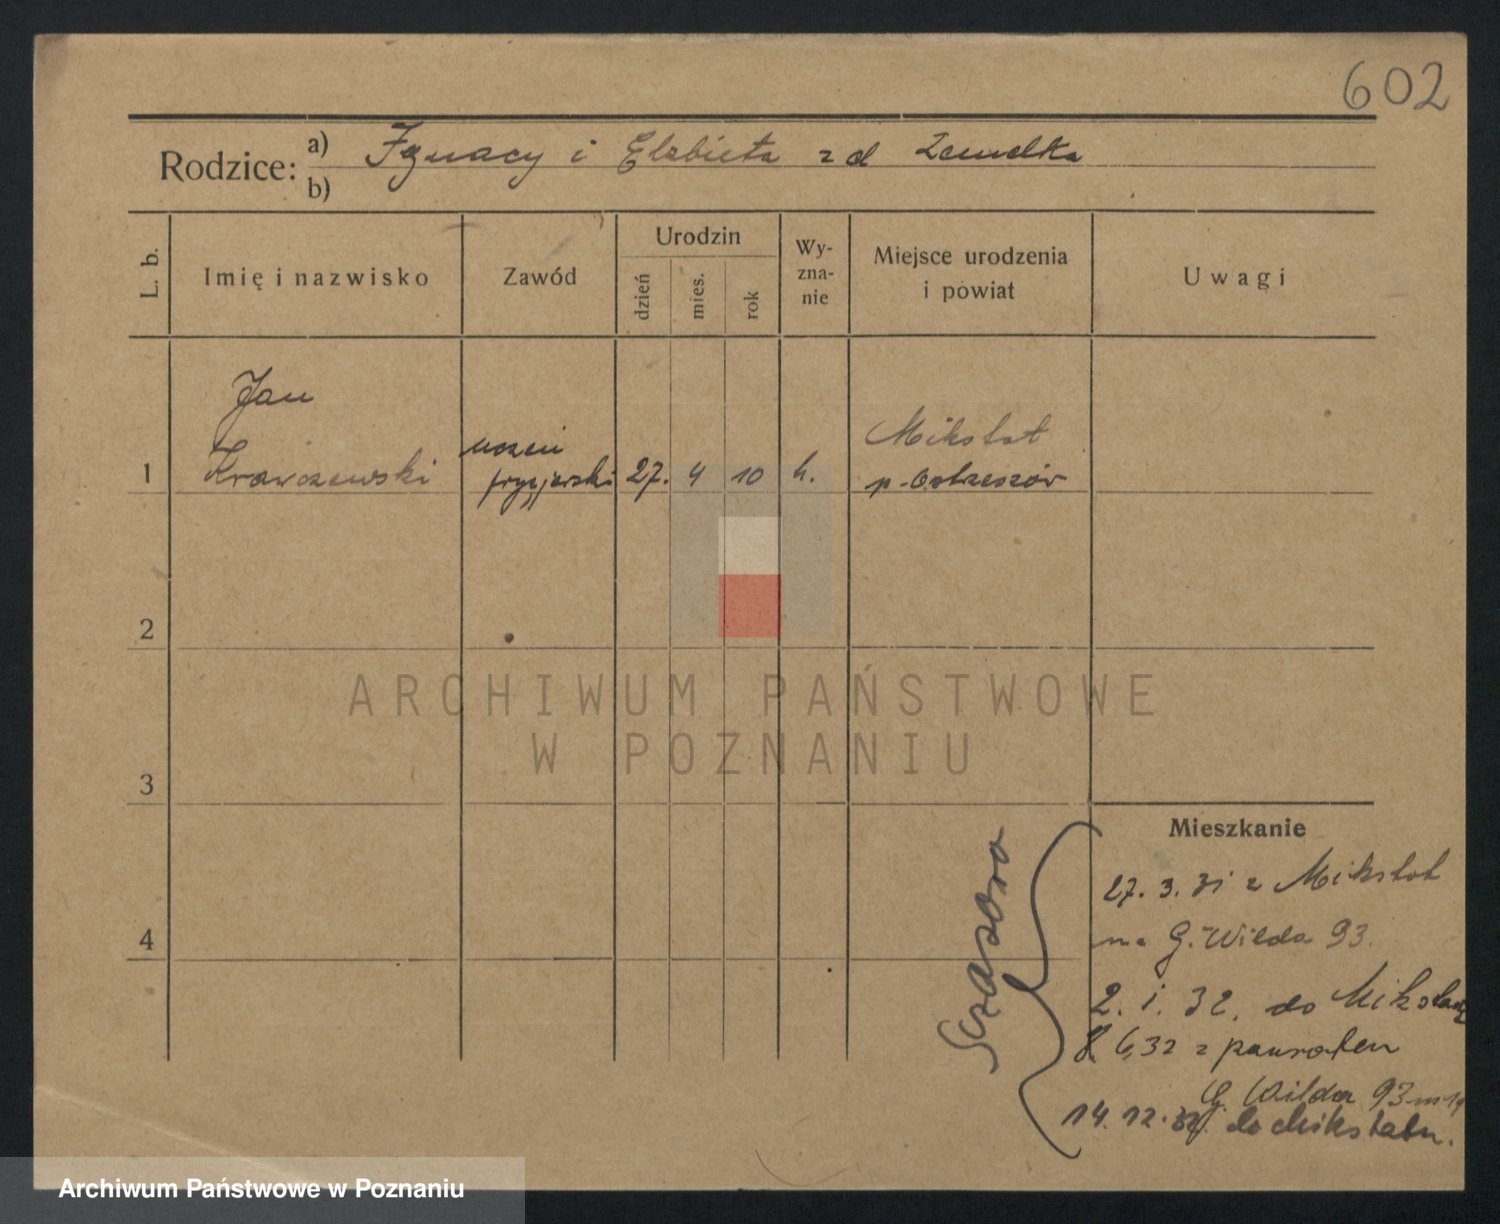 602
Rodzice: a) Ignacy i Elżbieta z d
b)
L. b.
Imię i nazwisko
Zawód
Urodzin
dzień
mies.
rok
Wy-
zna-
nie
Miejsce urodzenia
i powiat
Uwagi
Jan
Krawczewski
uczeń
fryzjerski
27. 4 10 k.
Mikstat
p. Ostrzeszów
1
2
3
4
ARCHIWUM PAŃSTWOWE
W POZNANIU
Mieszkanie
27. 3. 31 z Mikstat
na G. Wilda 93.
2. 1. 32. do
6.32 z powrotem
G. Wilda 93 m
14. 12. do Mikstatu.
Archiwum Państwowe w Poznaniu